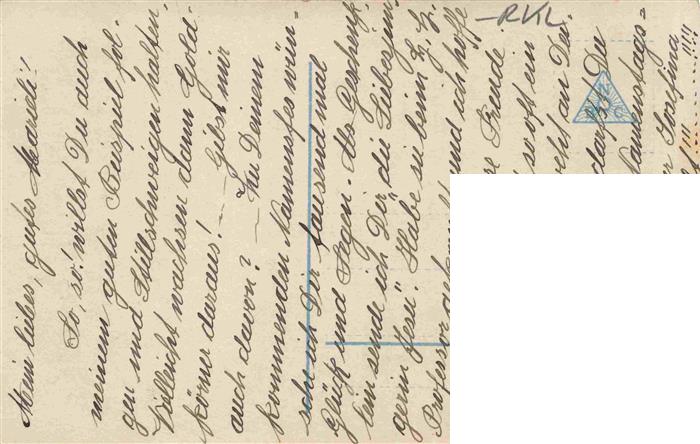 Mein liebes, gutes Mareili!
So, so! willst Du auch
meinem guten Beispiel fol-
gen und Stillschweigen halten.
Vielleicht wachsen dann Gold-
körner daraus! — Gibst mir
auch davon? — Zu Deinem
kommenden Namensfes wün-
sche ich Dir tausend mal
Glück und Segen. Als Geschenk
lein sende ich Dir die Liebesjün-
gerin Jesu! Habe sie beim H. H.
Professor und ich hoffe
Freude.
so oft ein
an Dei
darfst Du
Namenstags-
Josefina
!!! !!!!
RKL
N
C